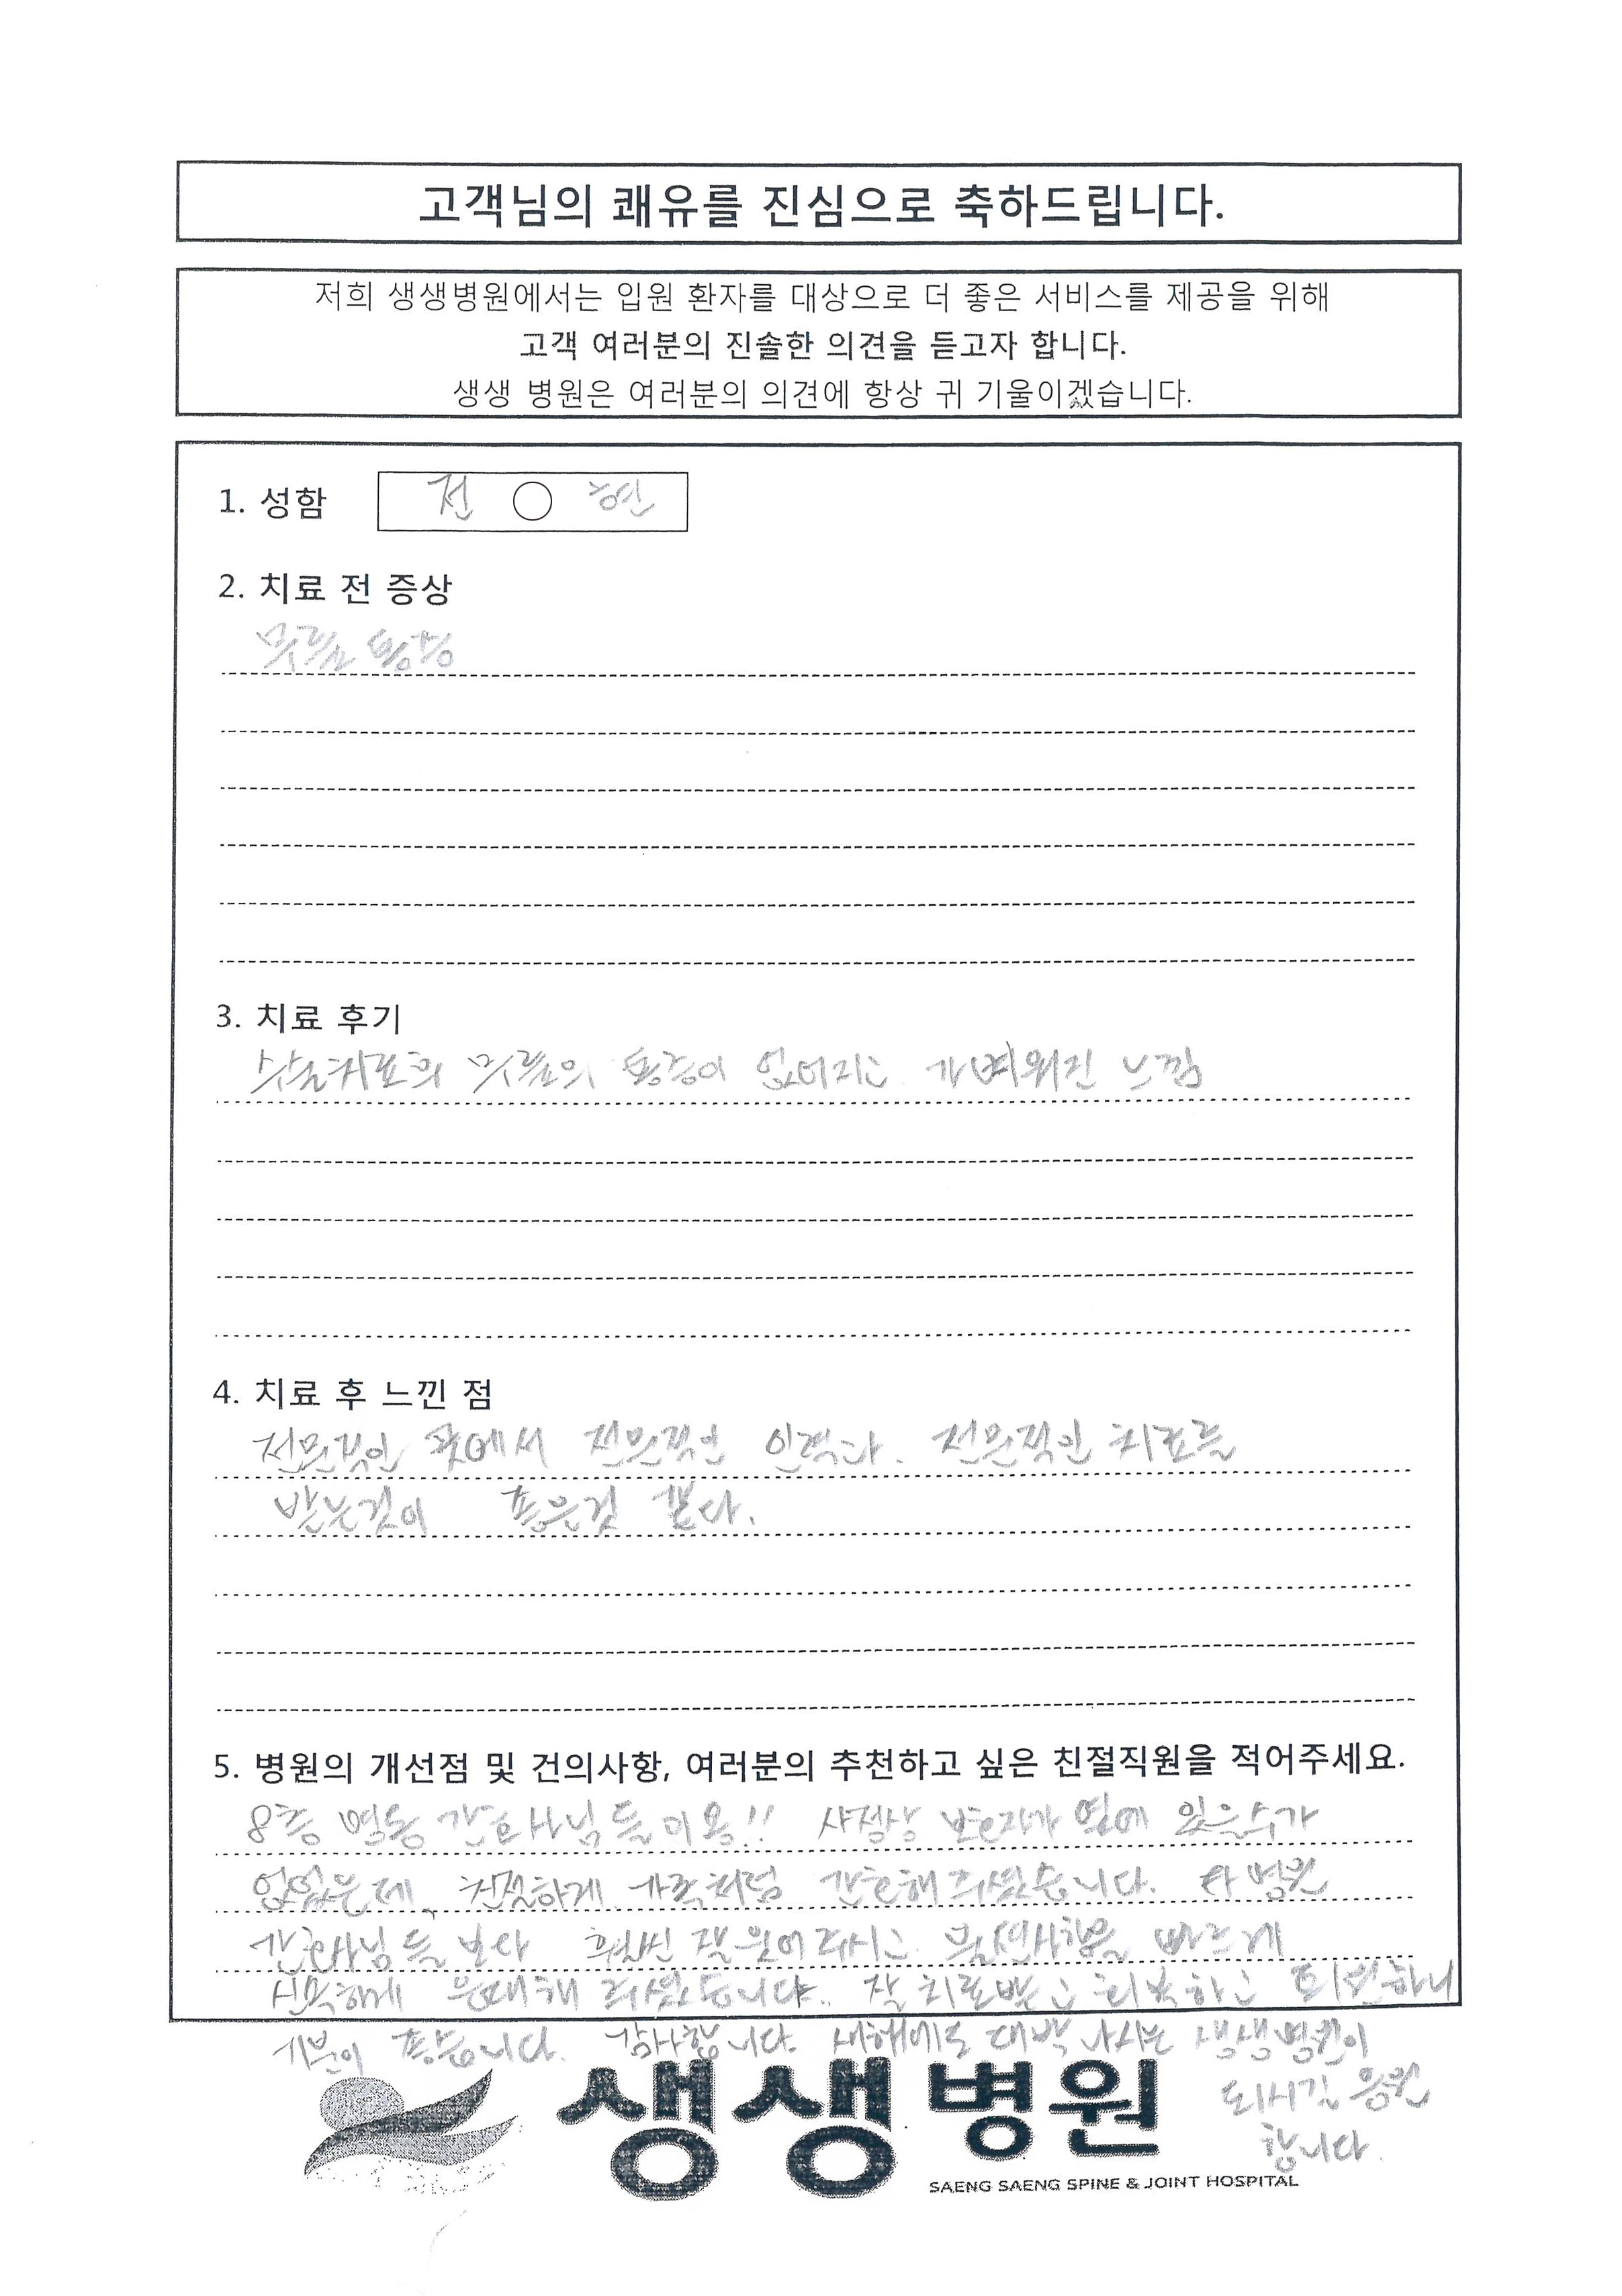 고객님의 쾌유를 진심으로 축하드립니다.
저희 생생병원에서는 입원 환자를 대상으로 더 좋은 서비스를 제공을 위해
고객 여러분의 진솔한 의견을 듣고자 합니다.
생생 병원은 여러분의 의견에 항상 귀 기울이겠습니다.
1. 성함 전 ○ 현
2. 치료 전 증상
무릎 통증
3. 치료 후기
수술치료의 무릎의 통증이 없어지고 가벼워진 느낌
4. 치료 후 느낀 점
전문적인 곳에서 전문적인 인력과. 전문적인 치료를
받는것이 좋은것 같다.
5. 병원의 개선점 및 건의사항, 여러분의 추천하고 싶은 친절직원을 적어주세요.
8층 병동 간호사님들 이용!! 사정상 보호자가 옆에 있을수가
없었은데, 친절하게 가족처럼 간호해 주셨습니다. 타 병원
간호사님들 보다 훨씬 잘 웃어주시고 불편사항을 빠르게
신속하게 응대해 주셨습니다. 잘 치료받고 회복하고 퇴원하니
기분이 좋습니다. 감사합니다. 새해에도 대박 나시는 생생병원이
되시길 응원
합니다.
생생병원
SAENG SAENG SPINE & JOINT HOSPITAL